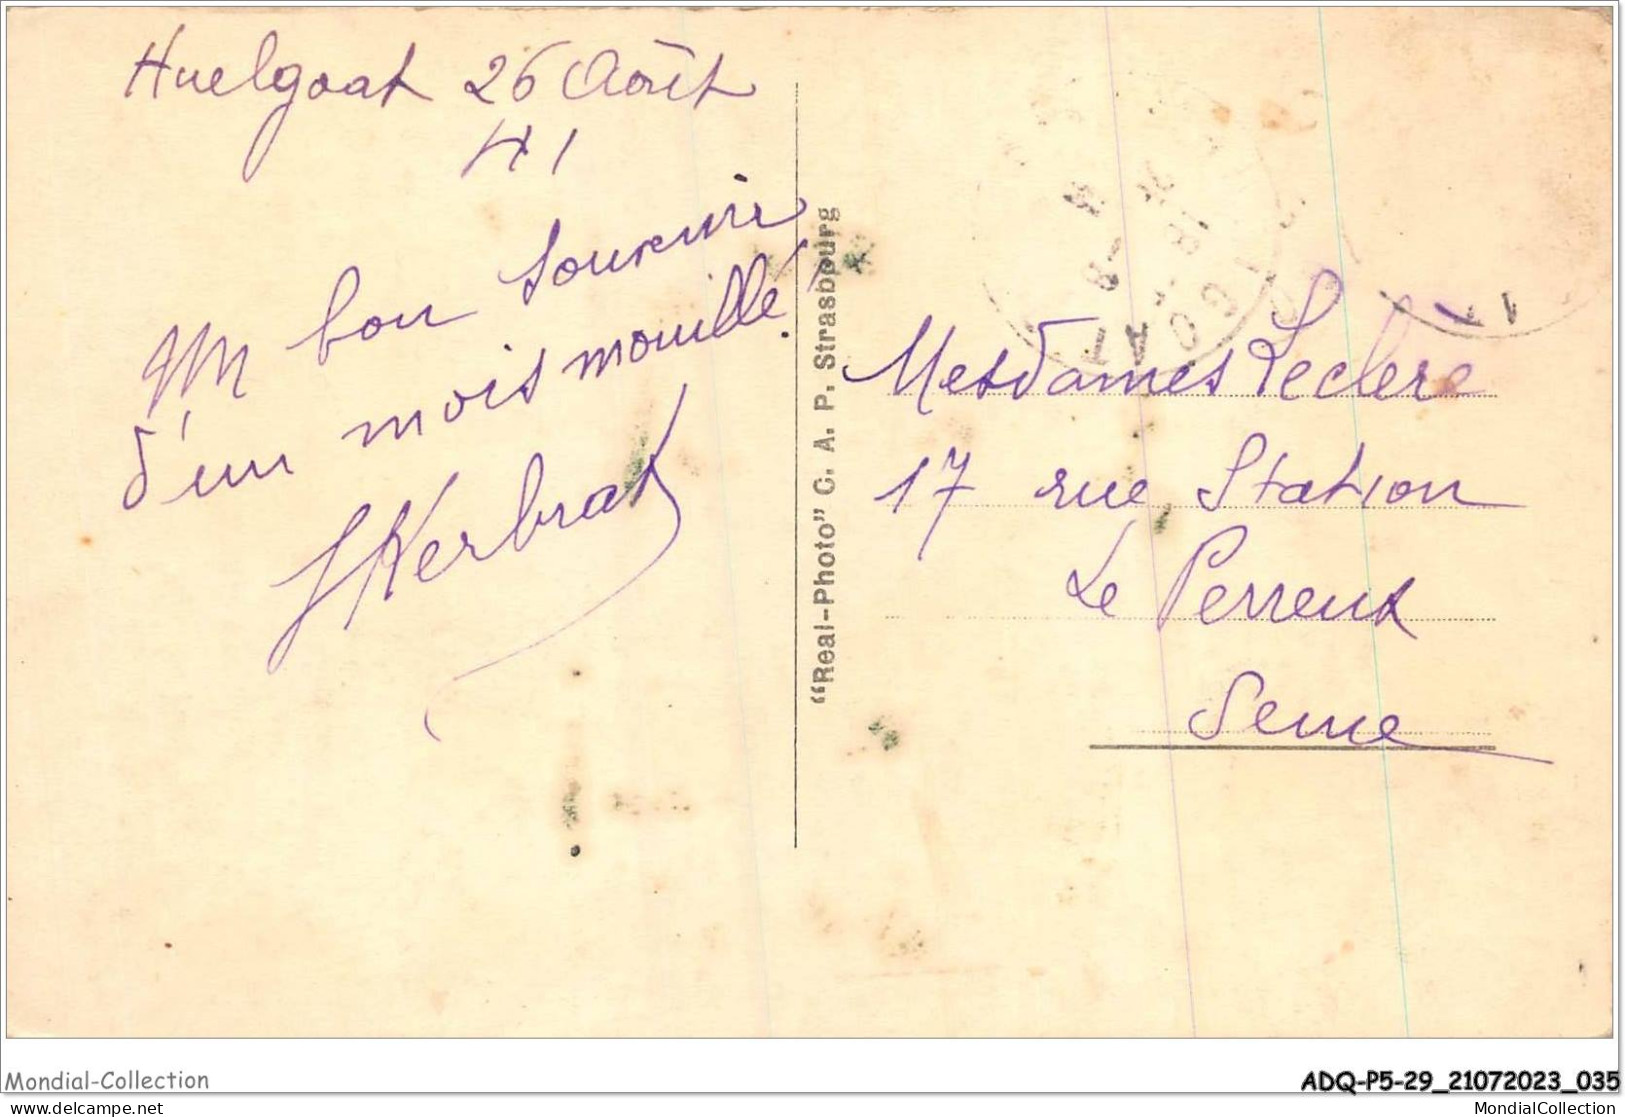 Huelgoat 26 Août
41
Un bon souvenir
d'un mois mouillé!
J Kerbrat
"Real-Photo" C. A. P. Strasbourg
Mesdames Leclere
17 rue Station
Le Perreux
Seine
Mondial-Collection
ADQ-P5-29_21072023_035
delcampe.net
MondialCollection